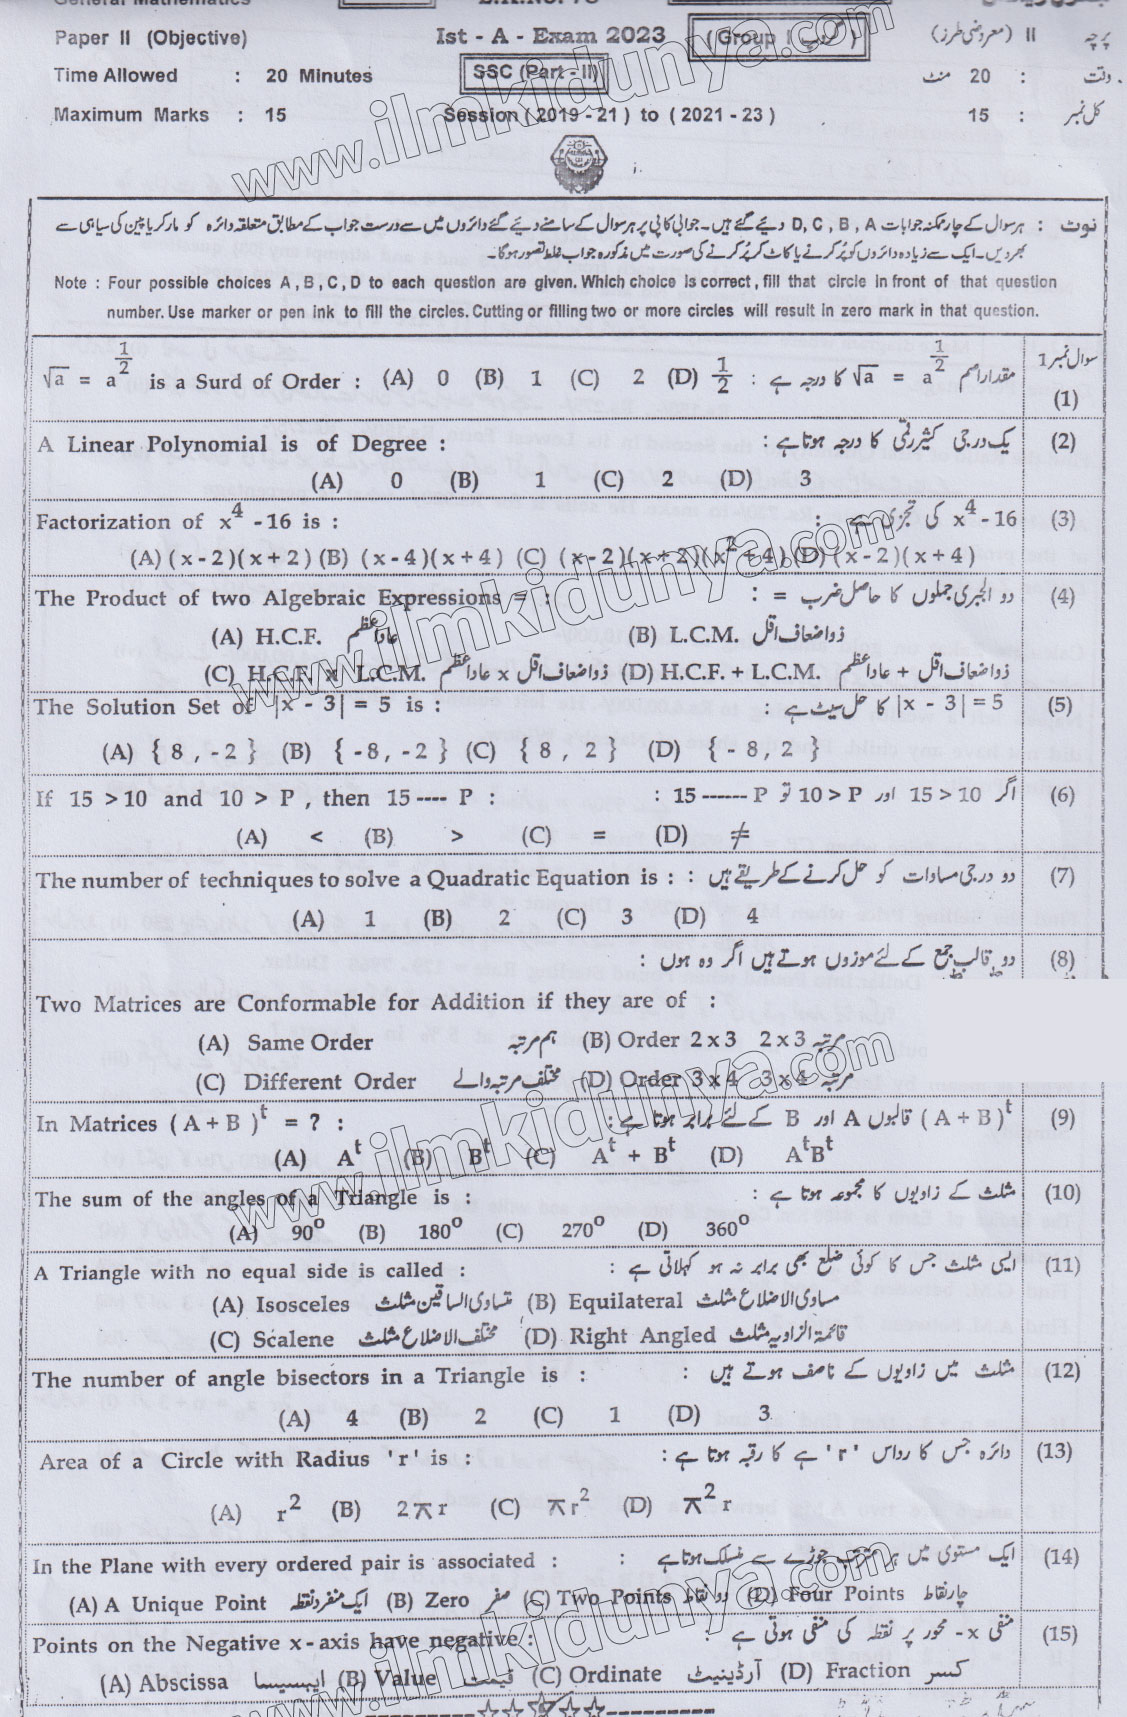 General Mathematics
Paper II (Objective)
Ist - A - Exam 2023
( Group I گروپ )
پرچہ II (معروضی طرز)
Time Allowed : 20 Minutes
SSC (Part - II)
وقت : 20 منٹ
Maximum Marks : 15
Session ( 2019 - 21 ) to ( 2021 - 23 )
کل نمبر : 15
نوٹ : ہر سوال کے چار ممکنہ جوابات D, C, B, A دیئے گئے ہیں۔ جوابی کاپی پر ہر سوال کے سامنے دیئے گئے دائروں میں سے درست جواب کے مطابق متعلقہ دائرہ کو مارکر یا پین کی سیاہی سے
بھر دیں۔ ایک سے زیادہ دائروں کو پُر کرنے یا کاٹ کر پُر کرنے کی صورت میں مذکورہ جواب غلط تصور ہوگا۔
Note : Four possible choices A , B , C , D to each question are given. Which choice is correct , fill that circle in front of that question
number. Use marker or pen ink to fill the circles. Cutting or filling two or more circles will result in zero mark in that question.
سوال نمبر 1
√a = a^(1/2) is a Surd of Order : (A) 0 (B) 1 (C) 2 (D) 1/2 مقدار اصم √a = a^(1/2) کا درجہ ہے : (1)
A Linear Polynomial is of Degree : یک درجی کثیر رقمی کا درجہ ہوتا ہے : (2)
(A) 0 (B) 1 (C) 2 (D) 3
Factorization of x⁴ - 16 is : x⁴ - 16 کی تجزی ہے : (3)
(A) ( x - 2 )( x + 2 ) (B) ( x - 4 )( x + 4 ) (C) ( x - 2 )( x + 2 )( x² + 4 ) (D) ( x - 2 )( x + 4 )
The Product of two Algebraic Expressions = : دو الجبری جملوں کا حاصل ضرب = : (4)
(A) H.C.F. عاداعظم (B) L.C.M. ذواضعاف اقل
(C) H.C.F. x L.C.M. ذواضعاف اقل x عاداعظم (D) H.C.F. + L.C.M. ذواضعاف اقل + عاداعظم
The Solution Set of |x - 3| = 5 is : |x - 3| = 5 کا حل سیٹ ہے : (5)
(A) { 8 , -2 } (B) { -8 , -2 } (C) { 8 , 2 } (D) { - 8 , 2 }
If 15 > 10 and 10 > P , then 15 ---- P : اگر 15 > 10 اور 10 > P تو 15 ------ P : (6)
(A) < (B) > (C) = (D) ≠
The number of techniques to solve a Quadratic Equation is : دو درجی مساوات کو حل کرنے کے طریقے ہیں : (7)
(A) 1 (B) 2 (C) 3 (D) 4
دو قالب جمع کے لئے موزوں ہوتے ہیں اگر وہ ہوں : (8)
Two Matrices are Conformable for Addition if they are of :
(A) Same Order ہم مرتبہ (B) Order 2 x 3 مرتبہ 2 x 3
(C) Different Order مختلف مرتبہ والے (D) Order 3 x 4 مرتبہ 3 x 4
In Matrices ( A + B )ᵗ = ? : قالبوں A اور B کے لئے برابر ہوتا ہے ( A + B )ᵗ : (9)
(A) Aᵗ (B) Bᵗ (C) Aᵗ + Bᵗ (D) AᵗBᵗ
The sum of the angles of a Triangle is : مثلث کے زاویوں کا مجموعہ ہوتا ہے : (10)
(A) 90° (B) 180° (C) 270° (D) 360°
A Triangle with no equal side is called : ایسی مثلث جس کا کوئی ضلع بھی برابر نہ ہو کہلاتی ہے : (11)
(A) Isosceles متساوی الساقین مثلث (B) Equilateral مساوی الاضلاع مثلث
(C) Scalene مختلف الاضلاع مثلث (D) Right Angled قائمۃ الزاویہ مثلث
The number of angle bisectors in a Triangle is : مثلث میں زاویوں کے ناصف ہوتے ہیں : (12)
(A) 4 (B) 2 (C) 1 (D) 3
Area of a Circle with Radius 'r' is : دائرہ جس کا رداس 'r' ہے کا رقبہ ہوتا ہے : (13)
(A) r² (B) 2πr (C) πr² (D) π²r
In the Plane with every ordered pair is associated : ایک مستوی میں ہر مترتب جوڑے سے منسلک ہوتا ہے : (14)
(A) A Unique Point ایک منفرد نقطہ (B) Zero صفر (C) Two Points دو نقاط (D) Four Points چار نقاط
Points on the Negative x - axis have negative : منفی x - محور پر نقطہ کی منفی ہوتی ہے : (15)
(A) Abscissa ایبسیسا (B) Value قیمت (C) Ordinate آرڈینیٹ (D) Fraction کسر
www.ilmkidunya.com
www.ilmkidunya.com
www.ilmkidunya.com
www.ilmkidunya.com